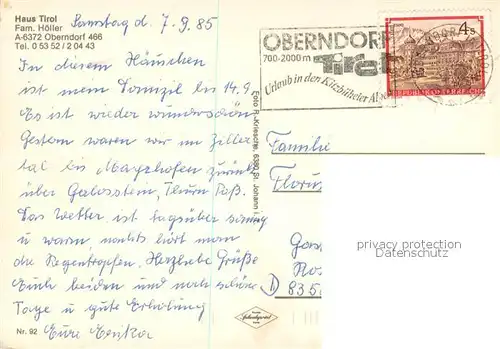 Haus Tirol
Fam. Höller
A-6372 Oberndorf 466
Tel. 0 53 52 / 2 04 43
Samstag d. 7.9.85
In diesem Häuschen
ist mein Sitz bis 14.9.
Es ist wieder wunderschön
Gestern waren wir im Ziller
tal bis Mayrhofen zurück
über Gerlosstein, Thurn Paß.
Das Wetter ist tagsüber sonnig
u warm, nachts hört man
die Regentropfen. Herzliche Grüße
Euch beiden und noch schöne
Tage u gute Erholung
Eure Erika
Nr. 92
Foto R. Krieschi, 6380 St. Johann i.
OBERNDORF
700-2000 m
Tirol
Urlaub in den Kitzbüheler Alpen
4 S
REPUBLIK ÖSTERREICH
Familie
Florian
D
835
privacy protection
Datenschutz